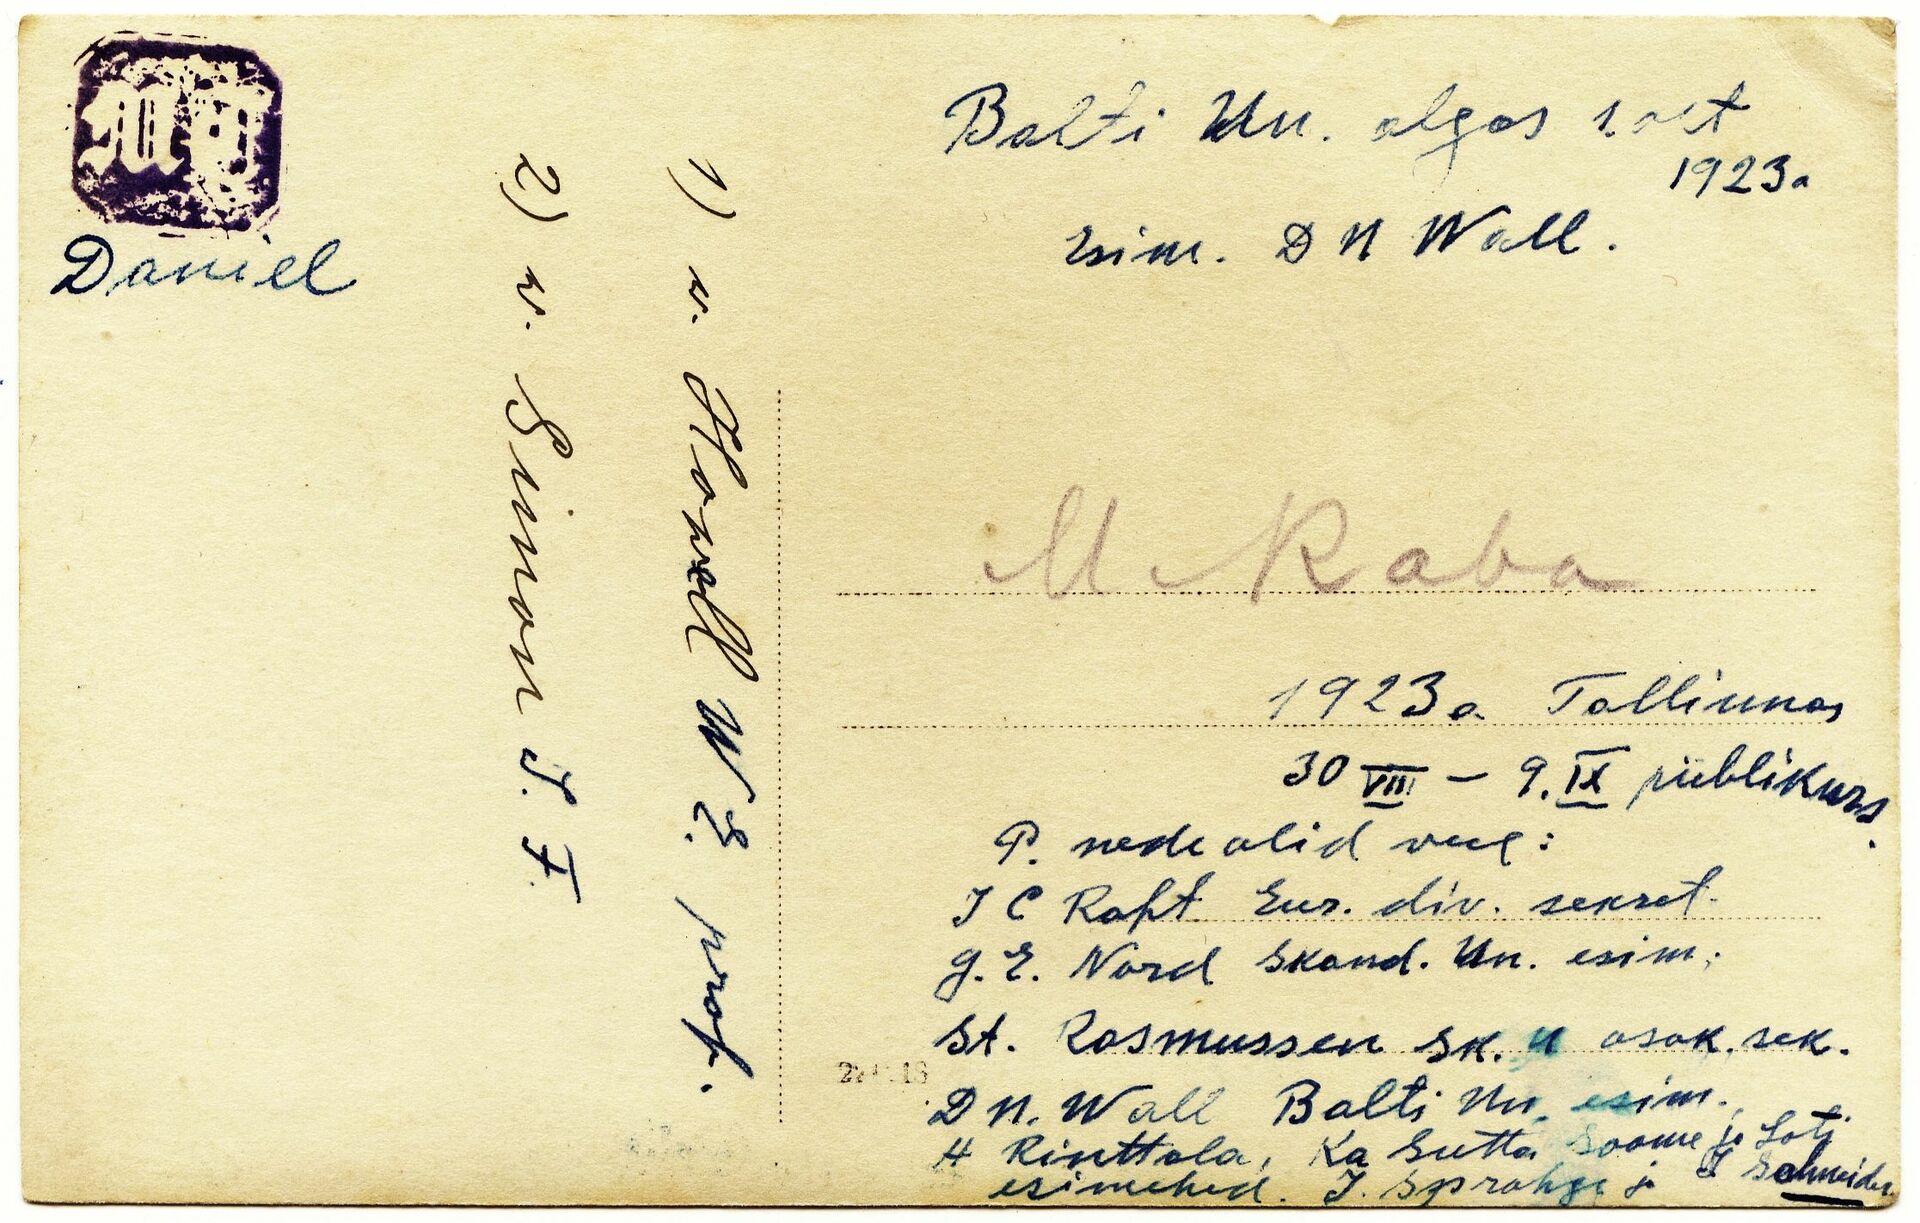 Daniel
1) v. Howell W. E. prof.
2) v. Simon J. F.
Balti Un. algas 1. okt
1923a
Esim. D N Wall.
M Raba
1923a Tallinnas
30 VIII – 9. IX piiblikurs.
P. nede olid veel:
J C Raft Eur. div. sekret.
G. E. Nord Skand. Un. esim.
St. Rasmussen Sk. U asak. sek.
D N. Wall Balti Un. esim.
H Rinttala, Ka Sutta Soome ja Läti
esimehed. J. Sprohge ja J Schneider